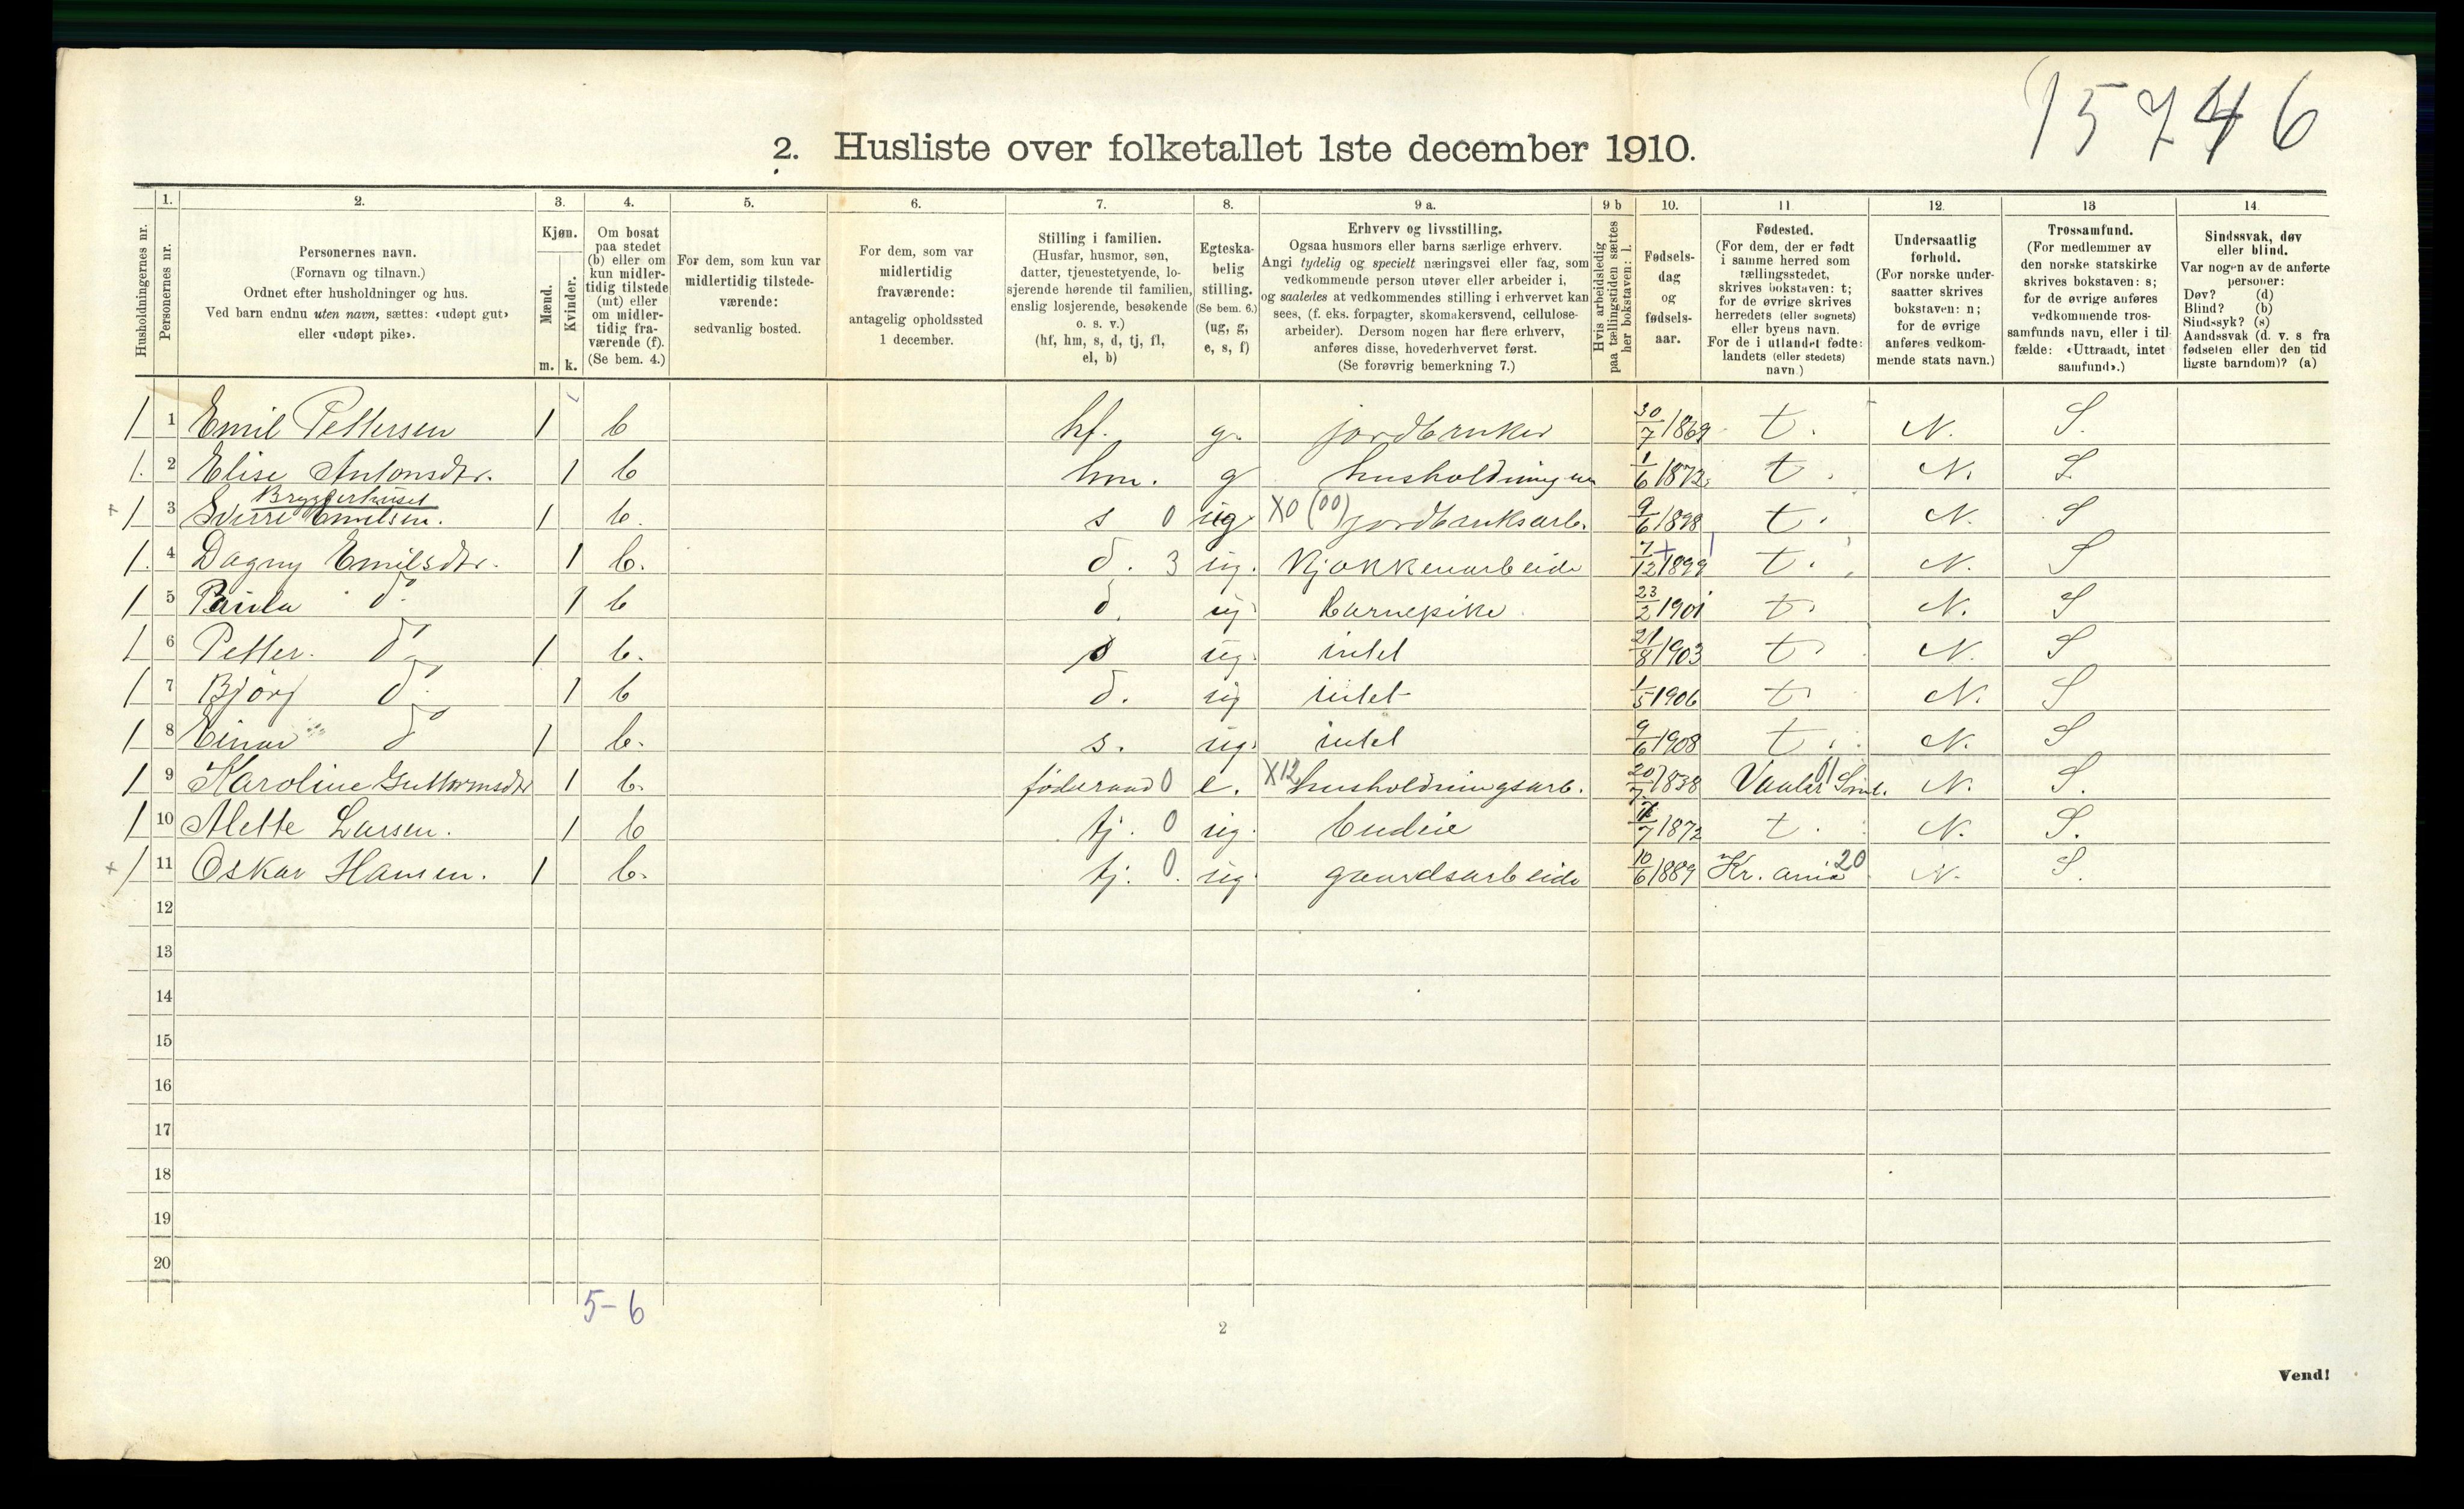 15746
2. Husliste over folketallet 1ste december 1910.
Husholdningernes nr.
1. Personernes nr.
2. Personernes navn.
(Fornavn og tilnavn.)
Ordnet efter husholdninger og hus.
Ved barn endnu uten navn, sættes: «udøpt gut»
eller «udøpt pike».
3. Kjøn.
Mænd. m.
Kvinder. k.
4. Om bosat
paa stedet
(b) eller om
kun midler-
tidig tilstede
(mt) eller
om midler-
tidig fra-
værende (f).
(Se bem. 4.)
5. For dem, som kun var
midlertidig tilstede-
værende:
sedvanlig bosted.
6. For dem, som var
midlertidig
fraværende:
antagelig opholdssted
1 december.
7. Stilling i familien.
(Husfar, husmor, søn,
datter, tjenestetyende, lo-
sjerende hørende til familien,
enslig losjerende, besøkende
o. s. v.)
(hf, hm, s, d, tj, fl,
el, b)
8. Egteska-
belig
stilling.
(Se bem. 6.)
(ug, g,
e, s, f)
9 a. Erhverv og livsstilling.
Ogsaa husmors eller barns særlige erhverv.
Angi tydelig og specielt næringsvei eller fag, som
vedkommende person utøver eller arbeider i,
og saaledes at vedkommendes stilling i erhvervet kan
sees, (f. eks. forpagter, skomakersvend, cellulose-
arbeider). Dersom nogen har flere erhverv,
anføres disse, hovederhvervet først.
(Se forøvrig bemerkning 7.)
9 b Hvis arbeidsledig
paa tællingstiden sættes
her bokstaven: l.
10. Fødsels-
dag
og
fødsels-
aar.
11. Fødested.
(For dem, der er født
i samme herred som
tællingsstedet,
skrives bokstaven: t;
for de øvrige skrives
herredets (eller sognets)
eller byens navn.
For de i utlandet fødte:
landets (eller stedets)
navn.)
12. Undersaatlig
forhold.
(For norske under-
saatter skrives
bokstaven: n;
for de øvrige
anføres vedkom-
mende stats navn.)
13 Trossamfund.
(For medlemmer av
den norske statskirke
skrives bokstaven: s;
for de øvrige anføres
vedkommende tros-
samfunds navn, eller i til
fælde: «Uttraadt, intet
samfund».)
14. Sindssvak, døv
eller blind.
Var nogen av de anførte
personer:
Døv? (d)
Blind? (b)
Sindssyk? (s)
Aandssvak (d. v. s fra
fødselen eller den tid
ligste barndom)? (a)
1 1 Emil Pettersen 1 b hf. g. jordbruker 30/7 1869 t. N. S.
1. 2 Elise Antonsdtr. 1 b hm. g husholdningen 1/6 1872 t. N. S.
Bryggerhuset
+ 1 3 Sverre Emilsen. 1 b. s 0 ug X0 (00) jordbruksarb. 9/6 1898 t. N. S
1. 4 Dagny Emilsdtr. 1 b. d. 3 ug. Kjøkkenarbeide 7/12 1899 t. N. S
1 5 Paula do 1 b d. ug Barnepike 23/2 1901 t. N. S
1 6 Petter. do 1 b. s ug. intet 21/8 1903 t N. S
1 7 Bjørg do 1 b d. ug intet 1/5 1906 t. N. S
1 8 Einar do 1 b. s. ug. intet 9/6 1908 t. N. S
1 9 Karoline Guttormsdtr 1 b. føderaad 0 e. X12 husholdningsarb. 20/7 1838 Vaaler Sml. 01 N. S.
1 10 Alette Larsen. 1 b tj. 0 ug. budeie /7 1872 t. N. S.
+ 1 11 Oskar Hansen. 1 b. tj. 0. ug gaardsarbeide 10/6 1889 Kr.ania 20 N. S.
12
13
14
15
16
17
18
19
20
5-6
2
Vend!